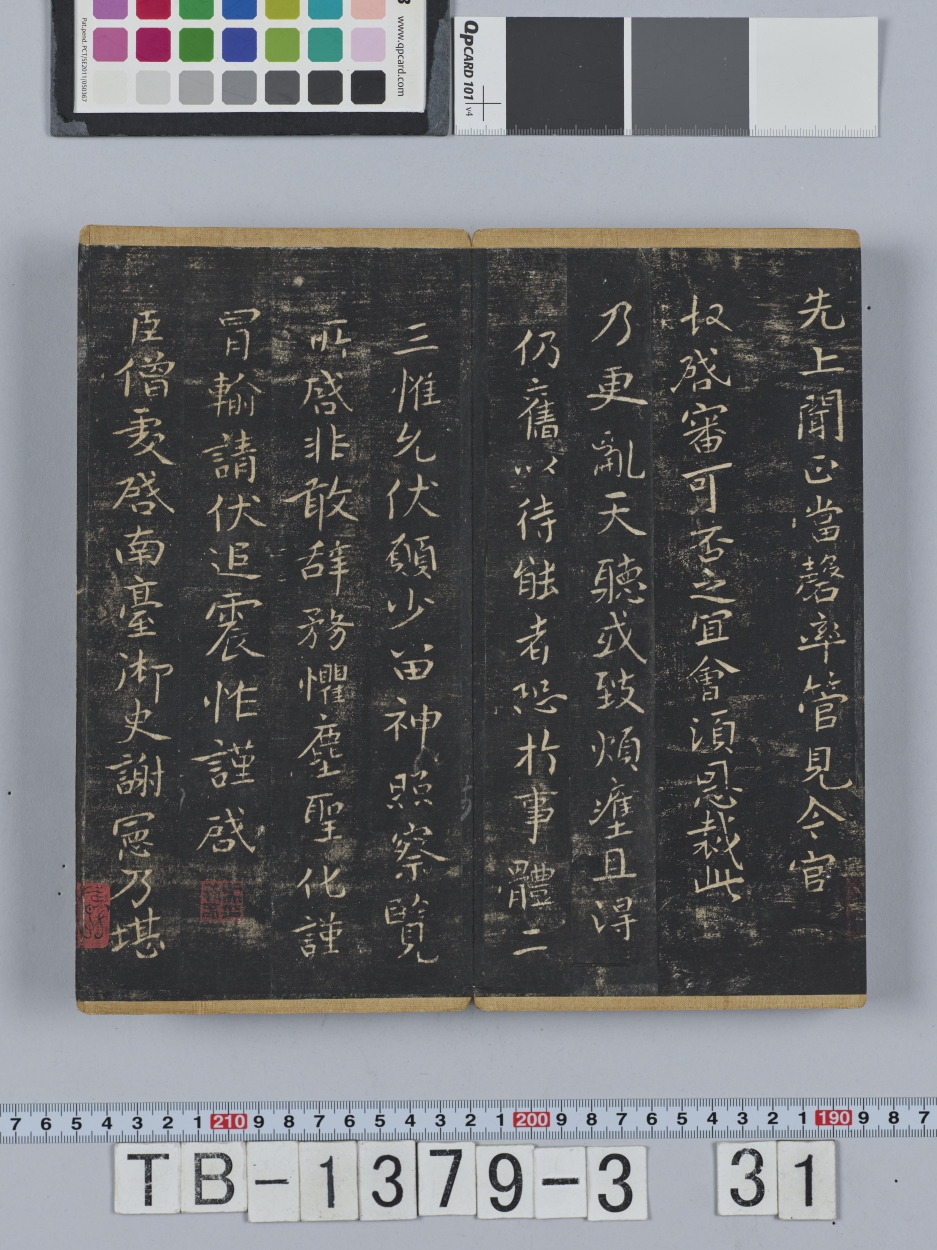 先上聞正當罄率管見今官
奴啓審可否之宜會須恩裁此
乃更亂天聽或致煩塵且得
仍舊以待能者恐於事體二
三惟允伏願少留神照察覽
所啓非敢辞務懼塵聖化謹
冒輸請伏追震怍謹啓
臣僧虔啓南臺御史謝憲乃堪
www.qpcard.com
Pat.pend. PCT/SE2011/050367
QPCARD 101 v4
7 6 5 4 3 2 1 210 9 8 7 6 5 4 3 2 1 200 9 8 7 6 5 4 3 2 1 190 9 8 7
TB-1379-3 31